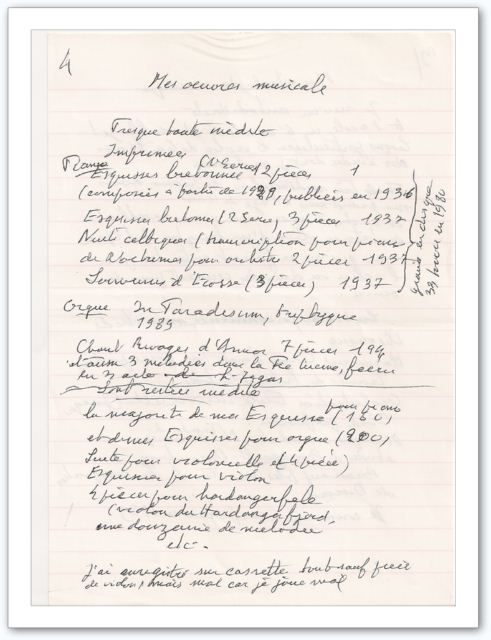 4
Mes oeuvres musicale
Presque toute inédite
Imprimées
Piano Esquisses bretonnes (1e Serie) 2 pièces 1
(composées à partir de 1929, publiées en 1936
Esquisses bretonnes (2 Serie) 3 pièces 1937
Nuits celtiques (transcription pour piano
de Nocturnes pour orchestre 2 pièces 1937
Souvenirs d'Ecosse (3 pièces) 1937
gravés en disque
33 tours en 1980
Orgue In Paradisum, triptyque
1989
Chant Rivages d'Armor 7 pièces 194
et aussi 3 mélodies dans la féerie
en 3 actes de
Sont restées inédites
la majorité de mes Esquisses pour piano (160,
et de mes Esquisses pour orgue (200,
Suite pour violoncelle et 4 pièces)
Esquisses pour violon
4 pièces pour hardangerfele
(violon du Hardangerfjord,
une douzaine de mélodies
etc-
j'ai enregistré sur cassette tout sauf pièces
de violon, mais mal car je joue mal